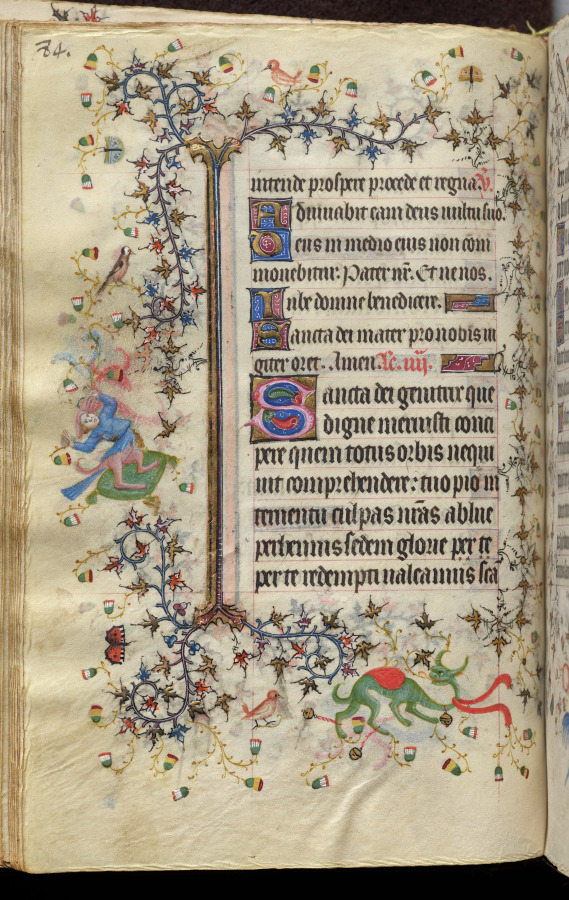 84.
intende prospere procede et regna. V̄.
Adiuuabit eam deus uultu suo.
Deus in medio eius non com
mouebitur. Pater nr̄. Et ne nos.
Iube domne benedicere.
Sancta dei mater pro nobis in
giter oret. Amen. Lc. iij.
Sancta dei genitrix que
digne meruisti conci
pere quem totus orbis nequi
uit comprehendere: tuo pio in
teruentu culpas nr̄as ablue
perhennis sedem glorie per te
per te redempti ualeamus sca